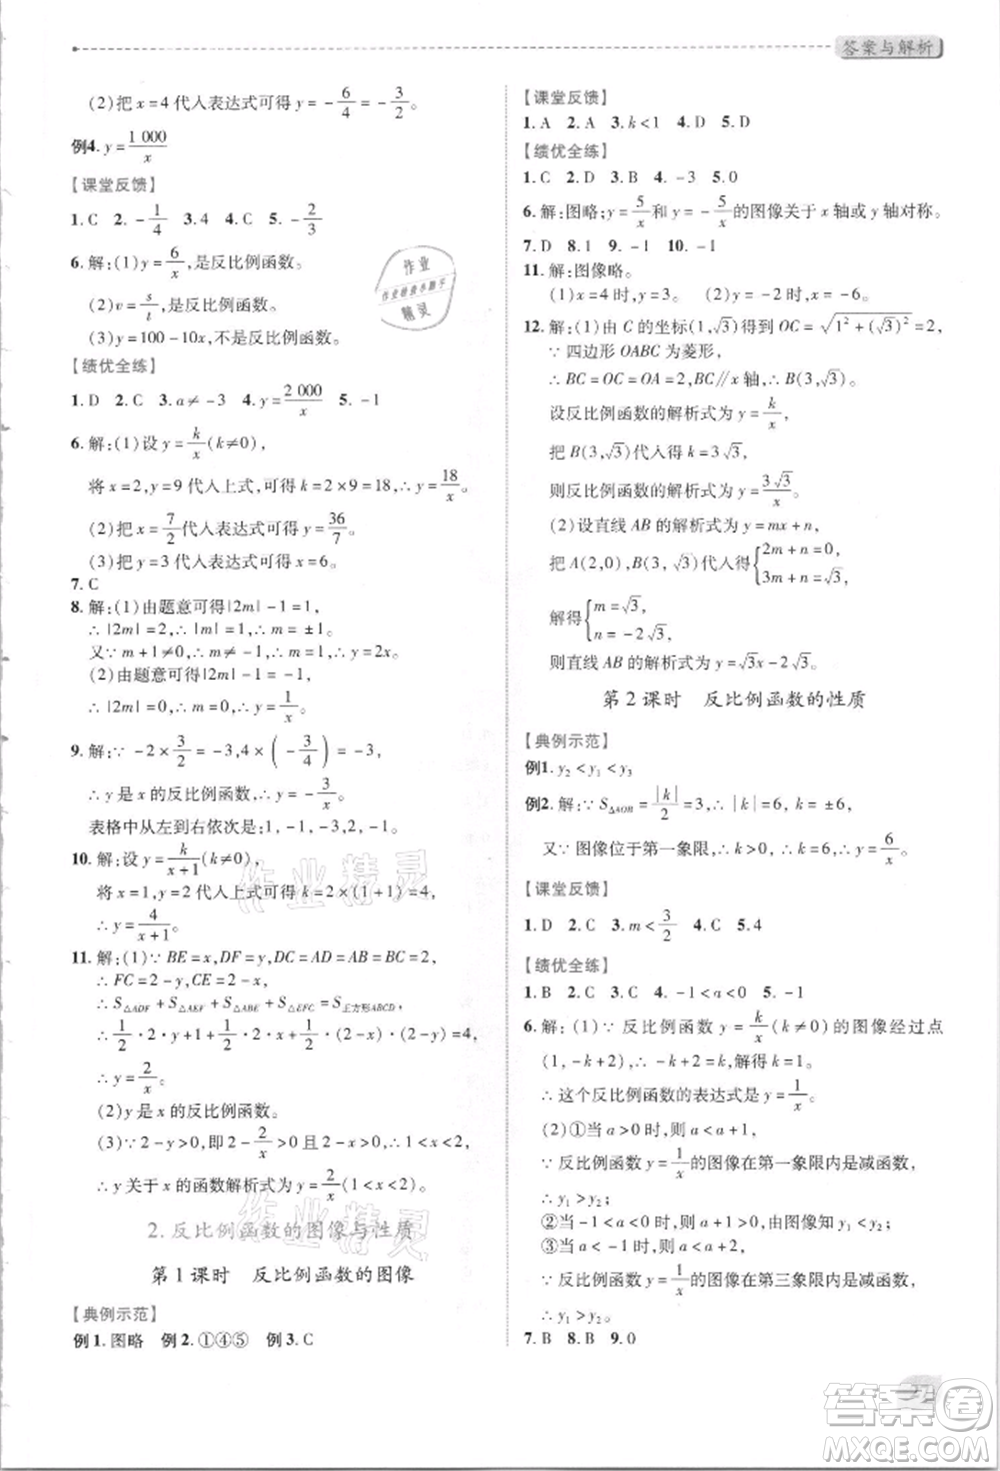 答案与解析
(2)把 x=4 代人表达式可得 y=-6/4=-3/2。
例4. y=1 000/x
【课堂反馈】
1. C 2. -1/4 3. 4 4. C 5. -2/3
6. 解:(1)y=6/x,是反比例函数。
(2)v=s/t,是反比例函数。
(3)y=100-10x,不是反比例函数。
【绩优全练】
1. D 2. C 3. a≠-3 4. y=2 000/x 5. -1
6. 解:(1)设 y=k/x(k≠0),
将 x=2,y=9 代人上式,可得 k=2×9=18,∴y=18/x。
(2)把 x=7/2代人表达式可得 y=36/7。
(3)把 y=3 代人表达式可得 x=6。
7. C
8. 解:(1)由题意可得|2m|-1=1,
∴|2m|=2,∴|m|=1,∴m=±1。
又∵m+1≠0,∴m=1,∴y=2x。
(2)由题意可得|2m|-1=-1,
∴|2m|=0,∴m=0,∴y=1/x。
9. 解:∵-2×3/2=-3,4×(-3/4)=-3,
∴y 是 x 的反比例函数,∴y=-3/x。
表格中从左到右依次是:3,-1,-3。
10. 解:设 y=k/(x+1)(k≠0),
将 x=1,y=2 代人上式可得 k=2×(1+1)=4,
∴y=4/(x+1)。
11. 解:(1)∵BE=x,DF=y,DC=BC=2,
∴FC=2-y,EC=2-x。
∴S△ADF+S△AEF+S△ABE+S△EFC=S正方形ABCD,
∴1/2·2·y+1+1/2·2·x+1/2·(2-x)·(2-y)=4,
∴y=2/x。
(2)y 是 x 的反比例函数。
(3)∵2-y>0,即 2-2/x>0 且 2-x>0,∴1<x<2,
∴y 关于 x 的函数解析式为 y=2/x(1<x<2)。
2. 反比例函数的图像与性质
第 1 课时 反比例函数的图像
【典例示范】
例 1. 图略 例 2. ①④⑤ 例 3. C
【课堂反馈】
1. A 2. A 3. k<1 4. D 5. D
【绩优全练】
1. C 2. D 3. B 4. -3 5. 0
6. 解:图略;y=5/x和 y=-5/x的图像关于 x 轴或 y 轴对称。
7. D 8. 1 9. -1 10. -1
11. 解:图像略。
(1)x=4 时,y=3。 (2)y=-2 时,x=-6。
12. 解:(1)由 C 的坐标(1,√3)得到 OC=√(1²+(√3)²)=2,
∵四边形 OABC 为菱形,
∴BC=OC=OA=2,BC∥x 轴,∴B(3,√3)。
设反比例函数的解析式为 y=k/x,
把 B(3,√3)代人得 k=3√3,
则反比例函数的解析式为 y=3√3/x。
(2)设直线 AB 的解析式为 y=mx+n,
把 A(2,0),B(3,√3)代人得{2m+n=0, 3m+n=√3,
解得{m=√3, n=-2√3,
则直线 AB 的解析式为 y=√3x-2√3。
第 2 课时 反比例函数的性质
【典例示范】
例1. y₂<y₁<y₃
例2. 解:∵S△AOB=|k|/2=3,∴|k|=6,∴k=±6,
又∵图像位于第一象限,∴k>0,∴k=6,∴y=6/x。
【课堂反馈】
1. D 2. C 3. m<3/2 4. C 5. 4
【绩优全练】
1. B 2. C 3. C 4. -1<a<0 5. -1
6. 解:(1)∵反比例函数 y=k/x(k≠0)的图像经过点
(1,-k+2),∴-k+2=k,解得 k=1。
∴这个反比例函数的表达式是 y=1/x。
(2)①当 a>0 时,则 a<a+1,
∵反比例函数 y=1/x的图像在第一象限内是减函数,
∴y₁>y₂;
②当-1<a<0 时,a+1>0,由图像知 y₁<y₂;
③当 a<-1 时,则 a<a+1,
∵反比例函数 y=1/x的图像在第三象限内是减函数,
∴y₁>y₂。
7. B 8. B 9. 0
作业
作业检查小助手
精灵
作业精灵
作业精灵
答案卷
MXQE.COM